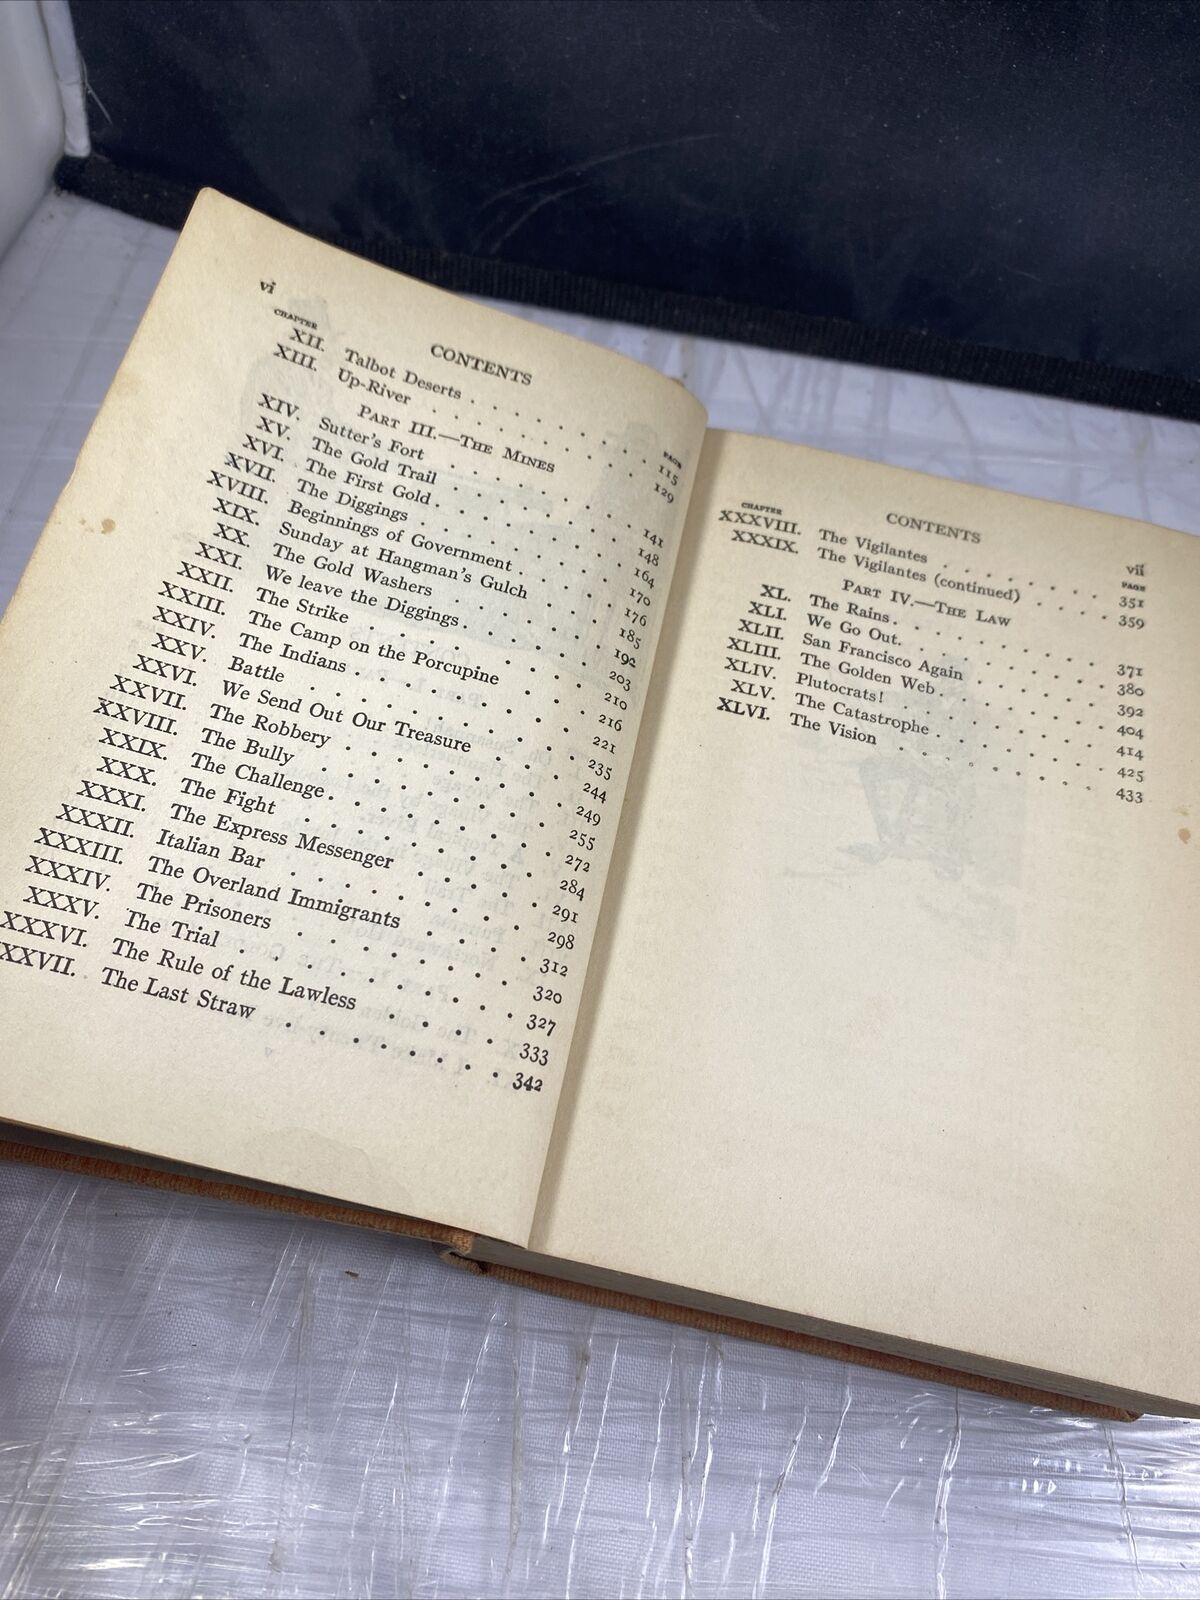 vi
CONTENTS
CHAPTER PAGE
XII. Talbot Deserts . . . . . . . 115
XIII. Up-River . . . . . . . . 129
PART III.—THE MINES
XIV. Sutter's Fort . . . . . . . 141
XV. The Gold Trail . . . . . . . 148
XVI. The First Gold . . . . . . . 164
XVII. The Diggings . . . . . . . 170
XVIII. Beginnings of Government . . . . . 176
XIX. Sunday at Hangman's Gulch . . . . . 185
XX. The Gold Washers . . . . . . . 192
XXI. We leave the Diggings . . . . . . 203
XXII. The Strike . . . . . . . . 210
XXIII. The Camp on the Porcupine . . . . . 216
XXIV. The Indians . . . . . . . . 221
XXV. Battle . . . . . . . . . 235
XXVI. We Send Out Our Treasure . . . . . 244
XXVII. The Robbery . . . . . . . . 249
XXVIII. The Bully . . . . . . . . 255
XXIX. The Challenge . . . . . . . . 272
XXX. The Fight . . . . . . . . 284
XXXI. The Express Messenger . . . . . . 291
XXXII. Italian Bar . . . . . . . . 298
XXXIII. The Overland Immigrants . . . . . 312
XXXIV. The Prisoners . . . . . . . . 320
XXXV. The Trial . . . . . . . . 327
XXXVI. The Rule of the Lawless . . . . . 333
XXVII. The Last Straw . . . . . . . 342
CONTENTS
vii
CHAPTER PAGE
XXXVIII. The Vigilantes . . . . . . . 351
XXXIX. The Vigilantes (continued) . . . . 359
PART IV.—THE LAW
XL. The Rains . . . . . . . . 371
XLI. We Go Out . . . . . . . . 380
XLII. San Francisco Again . . . . . . 392
XLIII. The Golden Web . . . . . . . 404
XLIV. Plutocrats! . . . . . . . . 414
XLV. The Catastrophe . . . . . . . 425
XLVI. The Vision . . . . . . . . 433